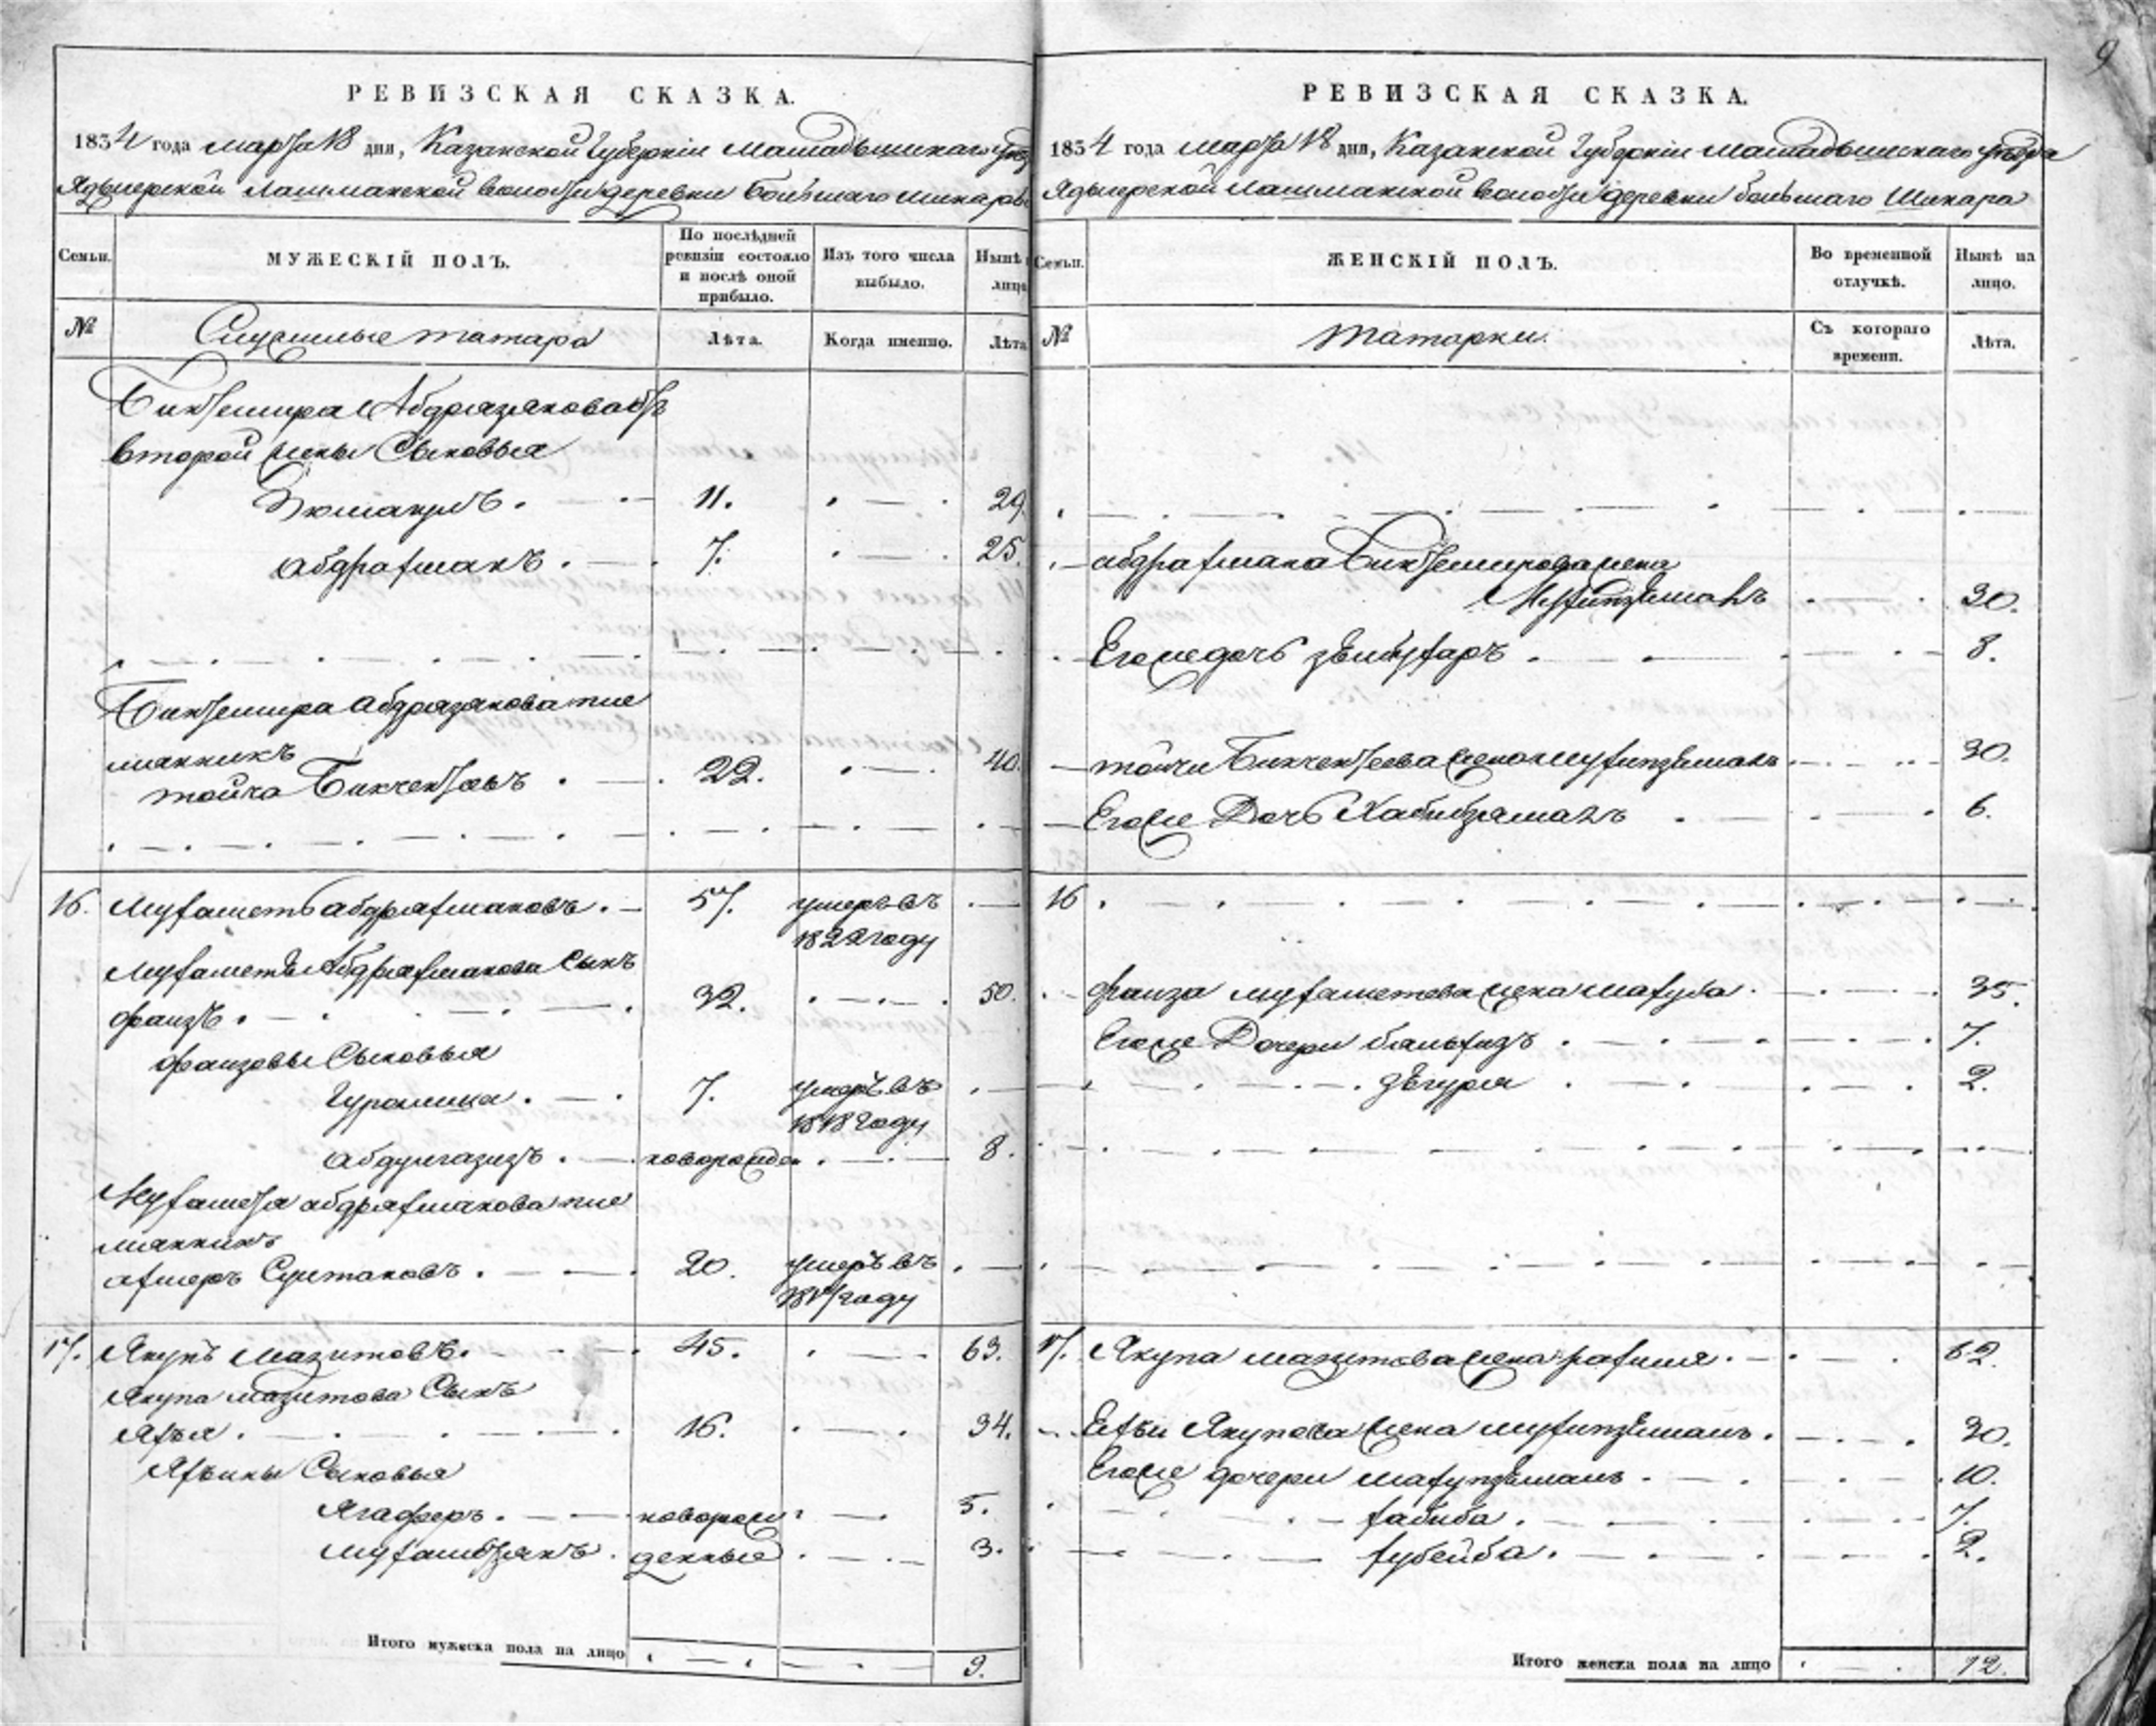 9
РЕВИЗСКАЯ СКАЗКА.
1834 года марта 18 дня, Казанской Губернiи Мамадышскаго
Ядыгерской Лашманской волости деревни Большаго Шикара
Семьи.
МУЖЕСКIЙ ПОЛЪ.
По послѣдней ревизiи состояло и послѣ оной прибыло.
Изъ того числа выбыло.
Нынѣ лицо
№
Служилые татара
Лѣта.
Когда именно.
Лѣта
Биктемира Абдрязякова отъ
второй жены Сыновья
Юмакулъ. 11. 29.
абдрахманъ. 7. 25.
Биктемира абдрязякова пле
мянникъ
тойча Бикчентаевъ 22. 40.
16. Мухаметь абдряхмановъ. 57. умеръ въ
1822 году
Мухаметя Абдряхманова Сынъ
фаизъ. 32. 50.
фаизовы Сыновья
7. умеръ въ
1818 году
абдулгазизъ. новорожден 8.
Мухаметя абдряхманова пле
мянникъ
ахмеръ Султановъ. 20. умеръ въ
году
17. Якупъ мазитовъ. 45. 63.
Якупа мазитова Сынъ
Яхья. 16. 34.
Яхьины Сыновья
Ягаферъ. новорож 5.
мухаметзянъ. денные 3.
Итого мужеска пола на лицо 9.
РЕВИЗСКАЯ СКАЗКА.
1834 года марта 18 дня, Казанской Губернiи Мамадышскаго уезда
Ядыгерской Лашманской волости деревни большаго Шикара
Семьи.
ЖЕНСКIЙ ПОЛЪ.
Во временной отлучкѣ.
Нынѣ на лицо.
№
татарки.
Съ котораго времени.
Лѣта.
абдрахмана Биктемирова жена
30.
Егоже дочь 8.
тойчи Бикчентеева жена 30.
Егоже Дочь Хабибзямалъ 6.
16
фаиза мухаметева жена махуба 35.
Егоже Дочери 7.
зѣгуря 2.
17. Якупа мазитова жена рафиля. 62.
Якупова жена 30.
Егоже дочери 10.
хабиба. 7.
хубейба. 2.
Итого женска пола на лицо 12.